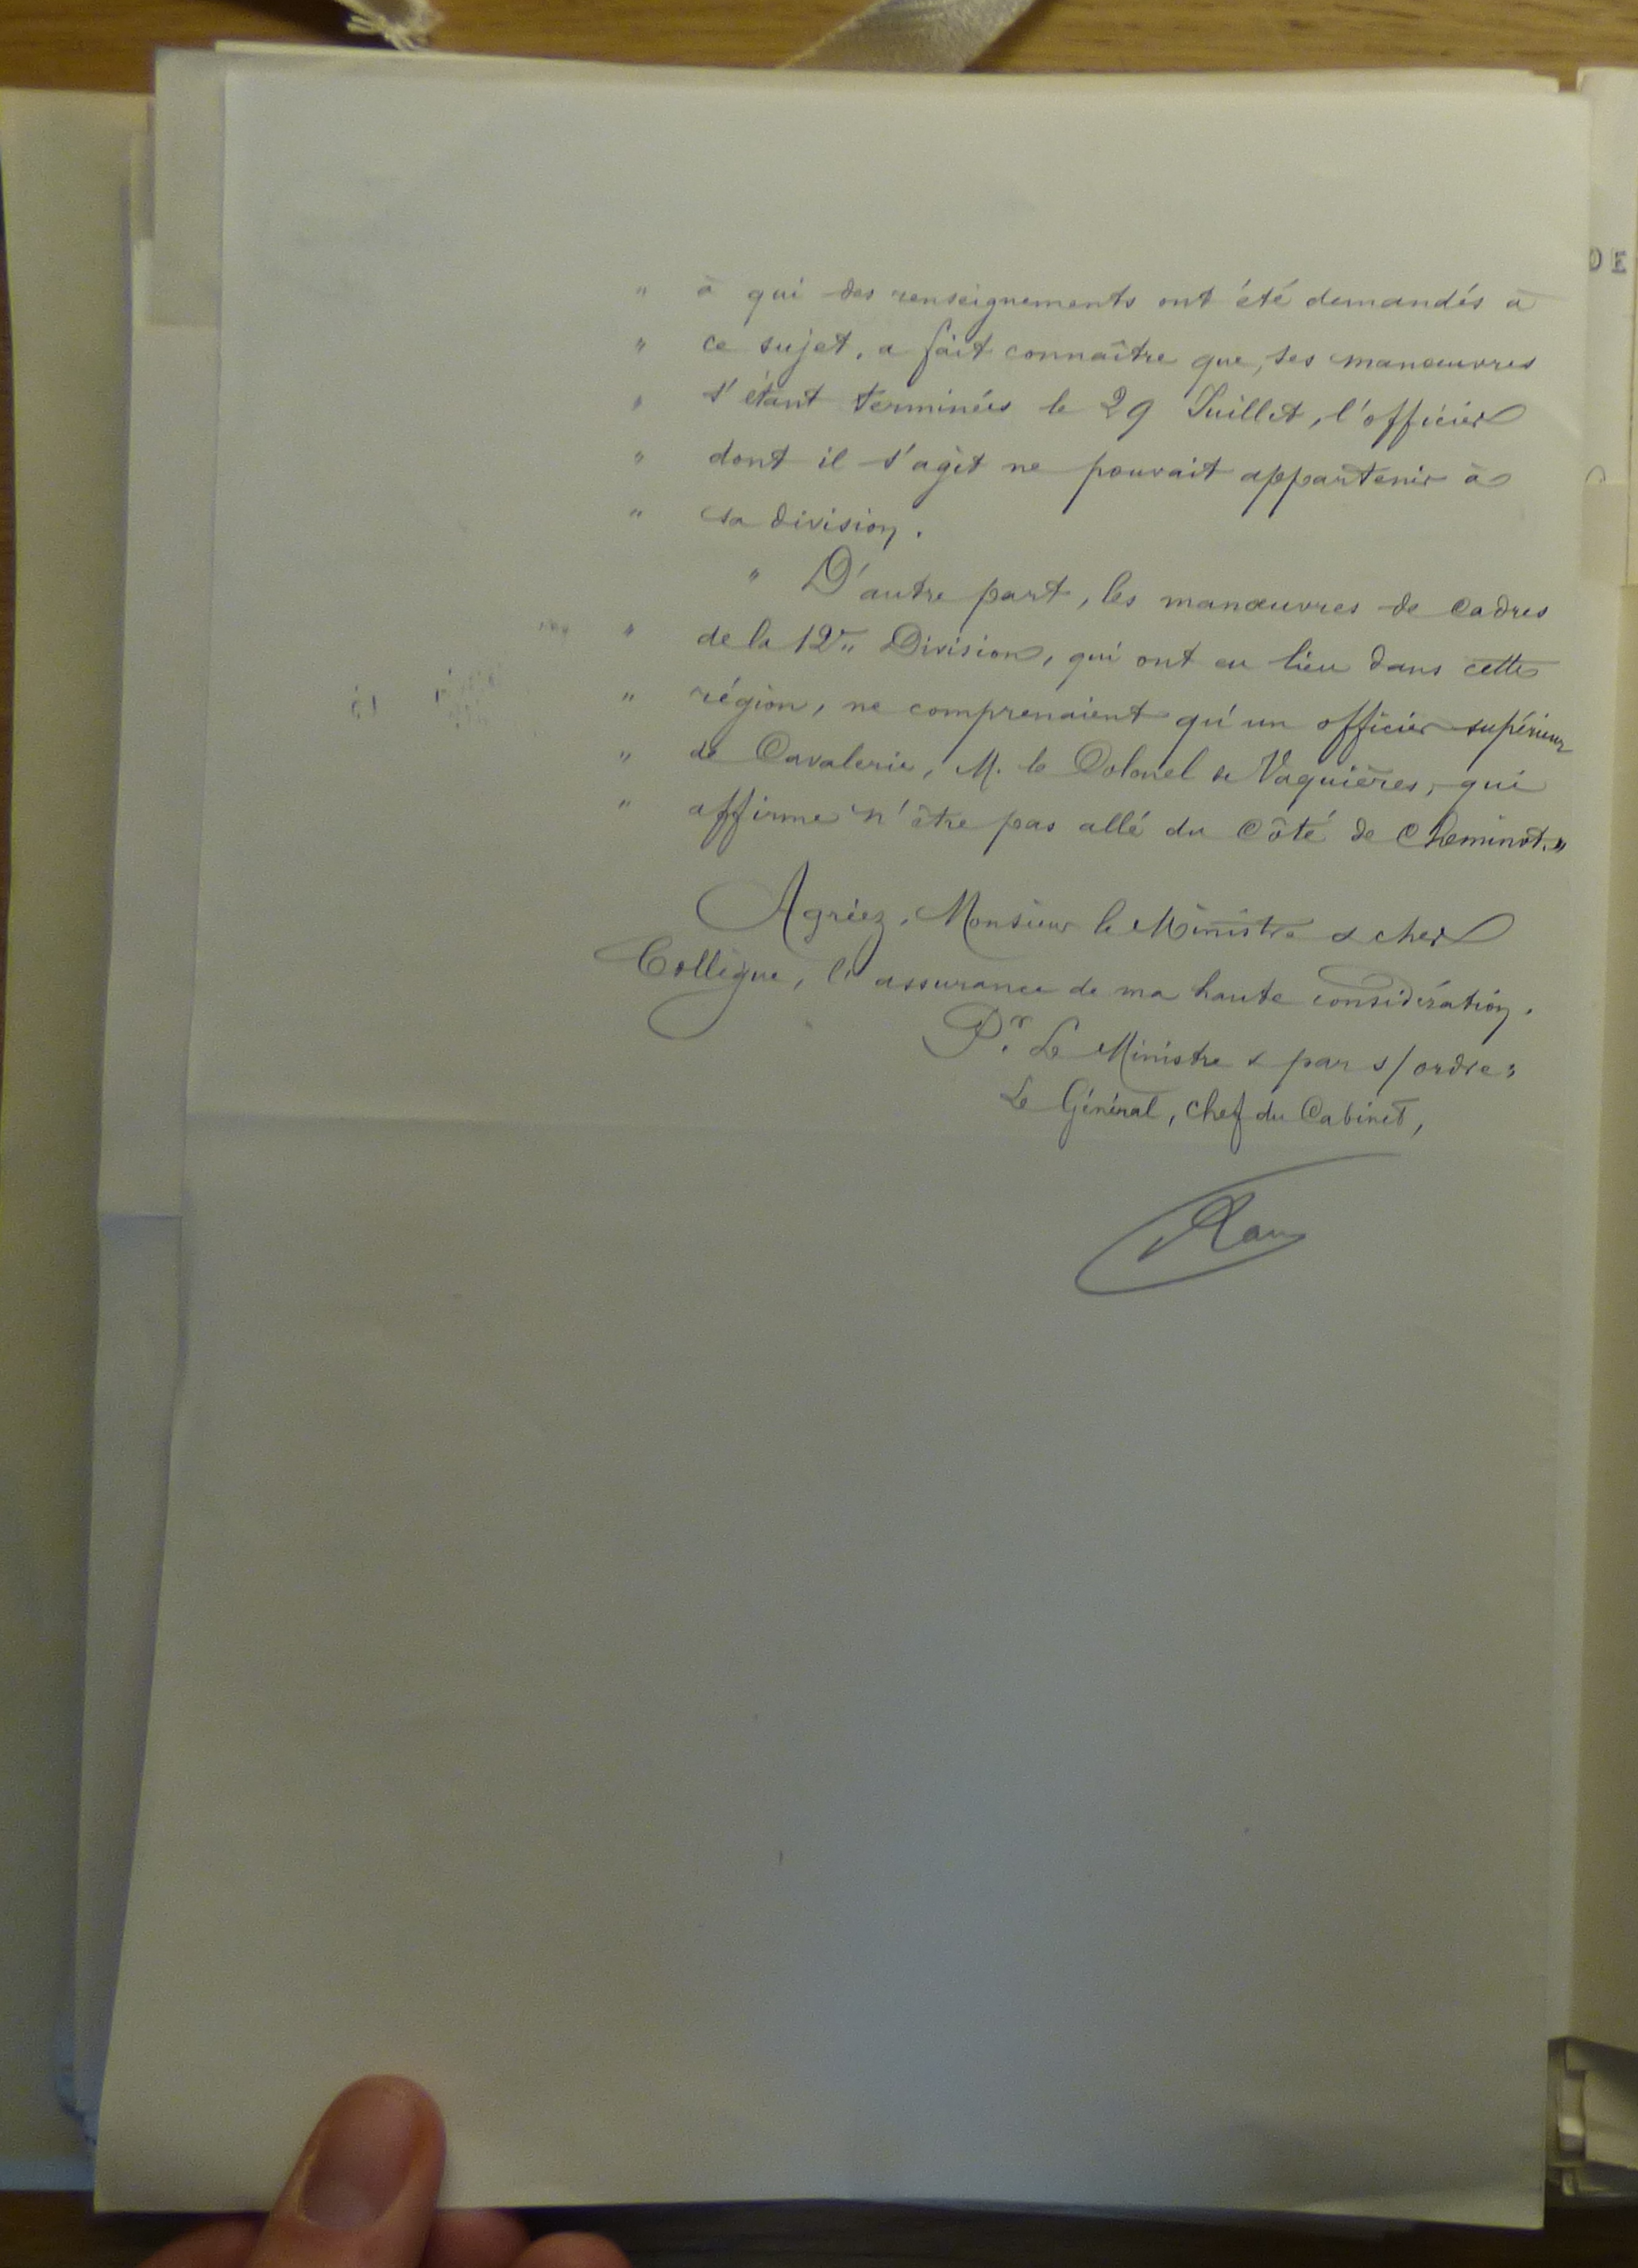 " à qui des renseignements ont été demandés à
" ce sujet, a fait connaître que, ses manœuvres
" s'étant terminées le 29 Juillet, l'officier
" dont il s'agit ne pouvait appartenir à
" sa division.
" D'autre part, les manœuvres de Cadres
" de la 12e Division, qui ont eu lieu dans cette
" région, ne comprenaient qu'un officier supérieur
" de Cavalerie, M. le Colonel de Vaquières, qui
" affirme n'être pas allé du Côté de Cheminot."
Agréez, Monsieur le Ministre & cher
Collègue, l'assurance de ma haute considération.
Pr. Le Ministre & par s/ordre:
Le Général, chef du Cabinet,
DE